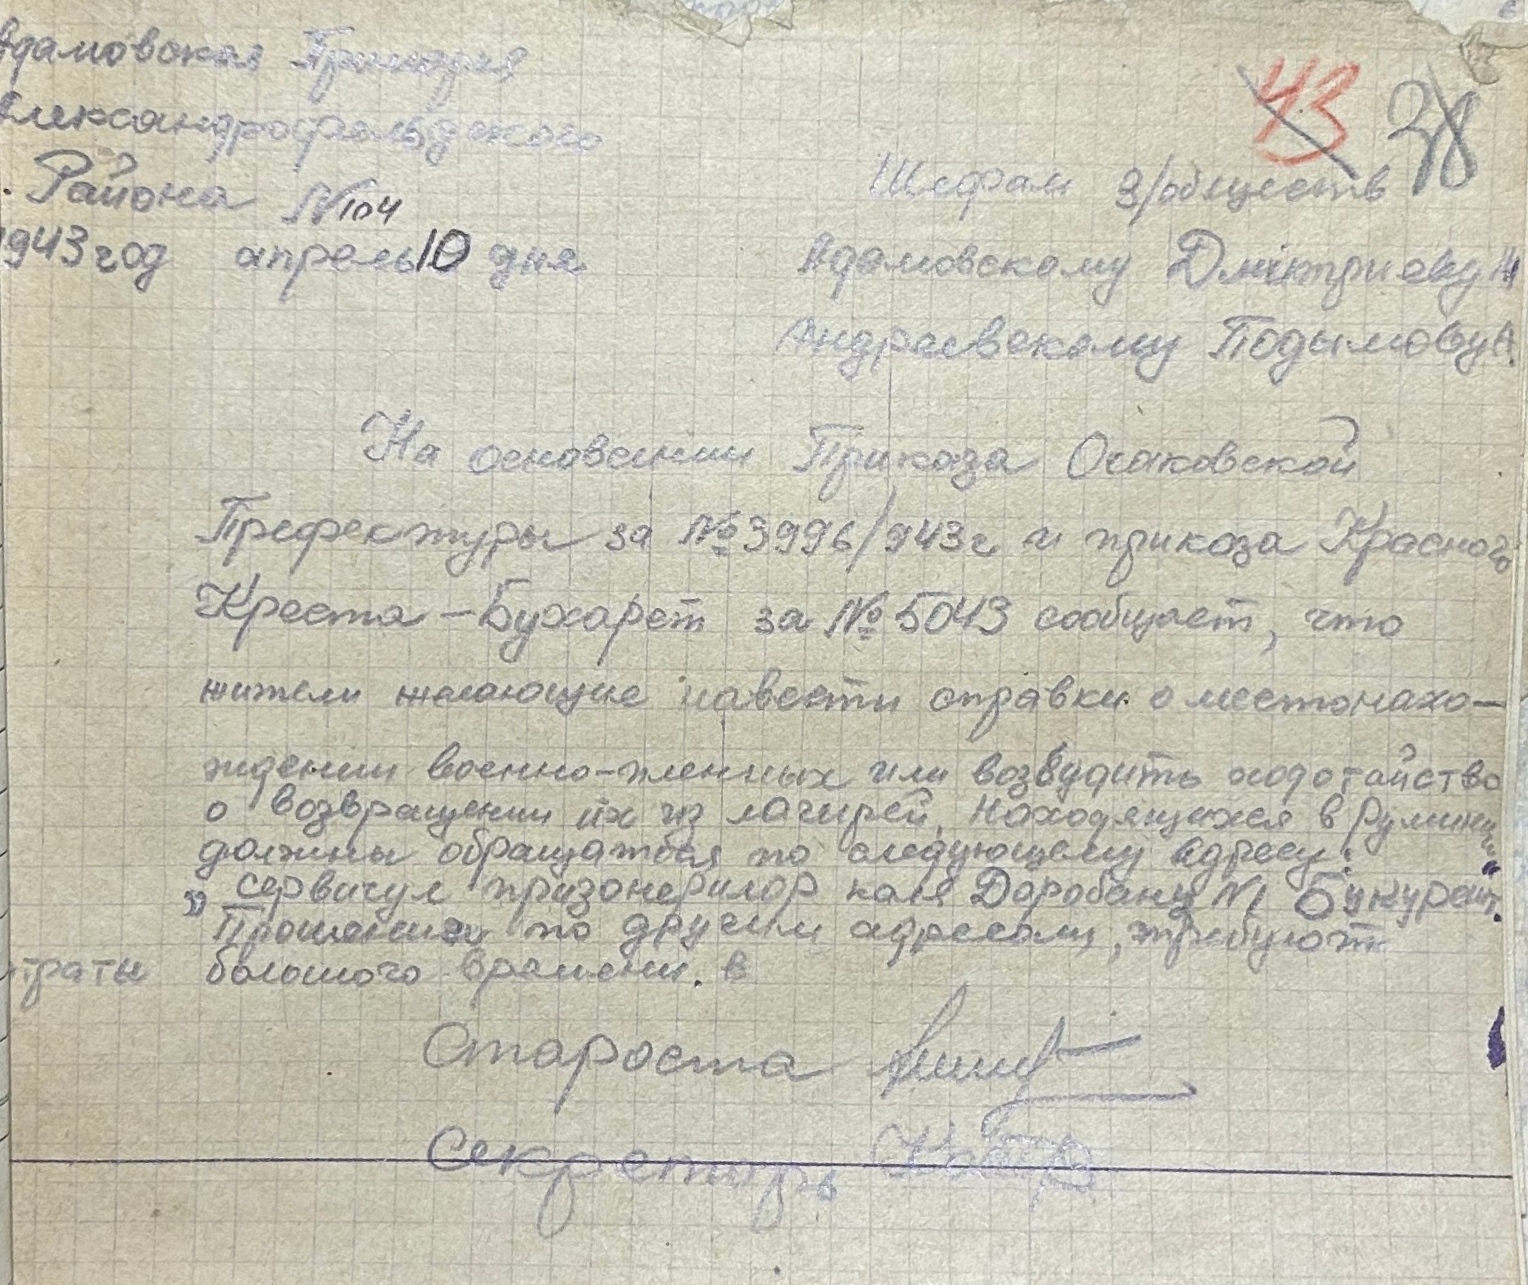 Адамовская Примария
Александрофельдского
Района №104
1943 год апрель 10 дня
43 38
Шефам з/обществ
Адамовскому Дмитриеву Н
Андреевскому Подымову А.
На основании Приказа Очаковской
Префектуры за №3996/943 г и приказа Красного
Креста – Бухарест за № 5043 сообщает, что
жители желающие навести справки о местонахо-
ждении военно-пленных или возбудить ходотайство
о возвращении их из лагирей, находящихся в Румынии
должны обращаться по следующему адресу:
„Сервичул призонерилор каля Доробанц N1 Букурешт."
Прошения по другим адресам, требуют
траты большого времени. в
Староста
Секретарь